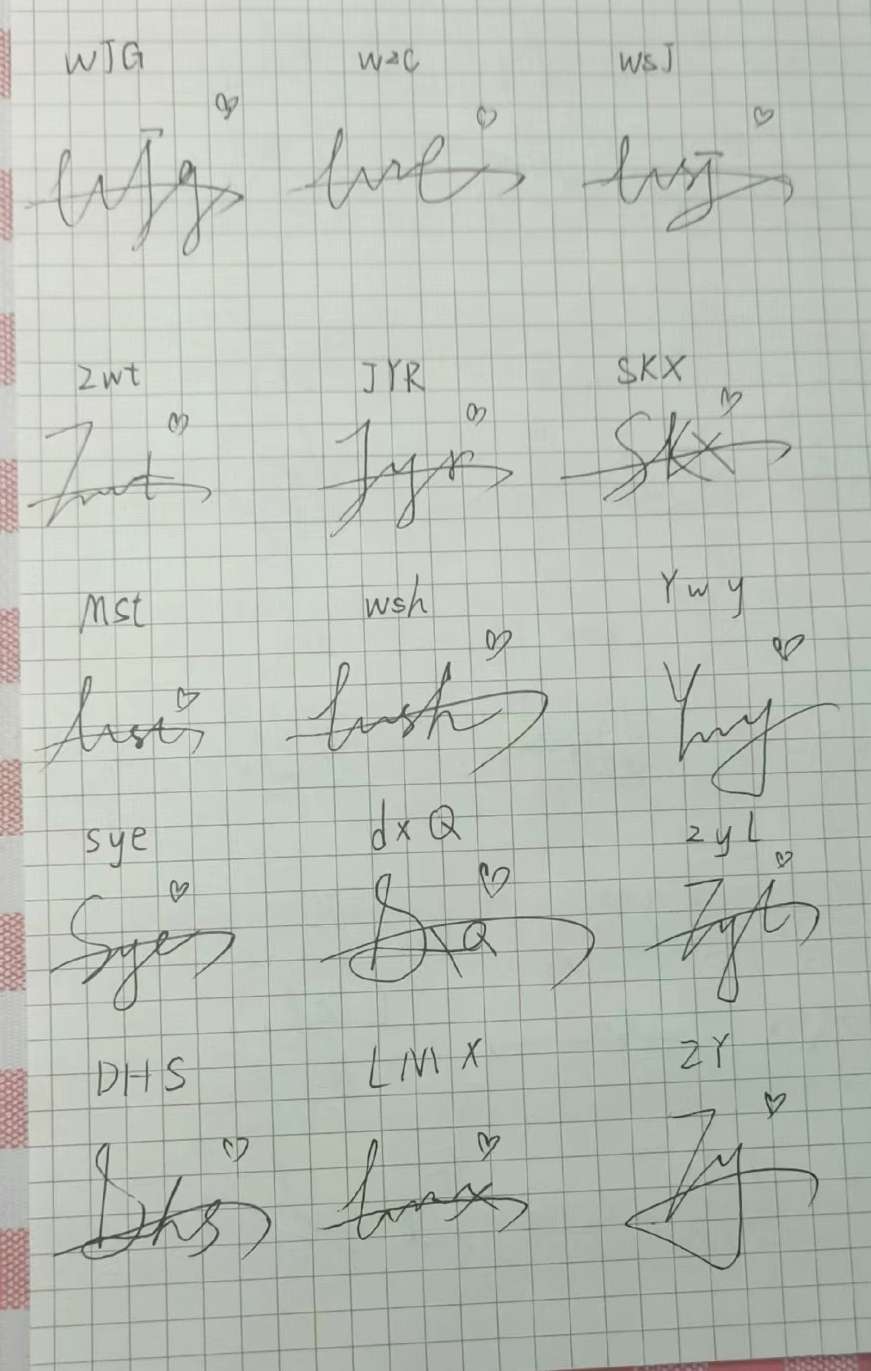 WJG wzc WsJ
Wjg wzc wsj
zwt JYR SKX
Zwt Jyr SKX
Mst wsh Ywy
Mst wsh Ywy
sye dxQ zyL
Sye DxQ Zyl
DHS LMX ZY
Dhs Lmx Zy